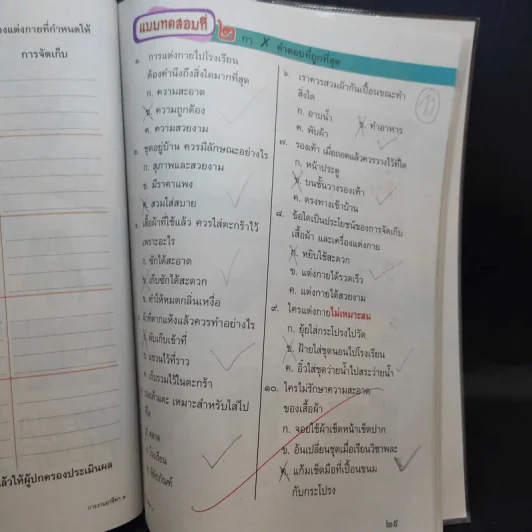 องแต่งกายที่กำหนดให้
การจัดเก็บ
ล้วให้ผู้ปกครองประเมินผล
การงานอาชีพฯ ๑
แบบทดสอบที่ ๒
กา X คำตอบที่ถูกที่สุด
๑. การแต่งกายไปโรงเรียน
ต้องคำนึงถึงสิ่งใดมากที่สุด
ก. ความสะอาด
ข. ความถูกต้อง
ค. ความสวยงาม
ชุดอยู่บ้าน ควรมีลักษณะอย่างไร
ก. สุภาพและสวยงาม
ข. มีราคาแพง
ค. สวมใส่สบาย
เสื้อผ้าที่ใช้แล้ว ควรใส่ตะกร้าไว้
เพราะอะไร
ก. ซักได้สะอาด
ข. เก็บซักได้สะดวก
ค. ทำให้หมดกลิ่นเหงื่อ
ผ้าที่ตากแห้งแล้วควรทำอย่างไร
พับเก็บเข้าที่
แขวนไว้ที่ราว
เก็บรวมไว้ในตะกร้า
เหมาะสำหรับใส่ไป
ตลาด
โรงเรียน
พิพิธภัณฑ์
๖. เราควรสวมผ้ากันเปื้อนขณะทำ
สิ่งใด
ก. อาบน้ำ
ข. ทำอาหาร
ค. พับผ้า
10
๗. รองเท้า เมื่อถอดแล้วควรวางไว้ที่ใด
ก. หน้าประตู
ข. บนชั้นวางรองเท้า
ค. ตรงทางเข้าบ้าน
๘. ข้อใดเป็นประโยชน์ของการจัดเก็บ
เสื้อผ้า และเครื่องแต่งกาย
ก. หยิบใช้สะดวก
ข. แต่งกายได้รวดเร็ว
ค. แต่งกายได้สวยงาม
๙. ใครแต่งกายไม่เหมาะสม
ก. ยุ้ยใส่กระโปรงไปวัด
ข. ฝ้ายใส่ชุดนอนไปโรงเรียน
ค. อิ๋วใส่ชุดว่ายน้ำไปสระว่ายน้ำ
๑๐. ใครไม่รักษาความสะอาด
ของเสื้อผ้า
ก. จอยใช้ผ้าเช็ดหน้าเช็ดปาก
ข. อ้นเปลี่ยนชุดเมื่อเรียนวิชาพละ
ค. แก้มเช็ดมือที่เปื้อนขนม
กับกระโปรง
๒๕